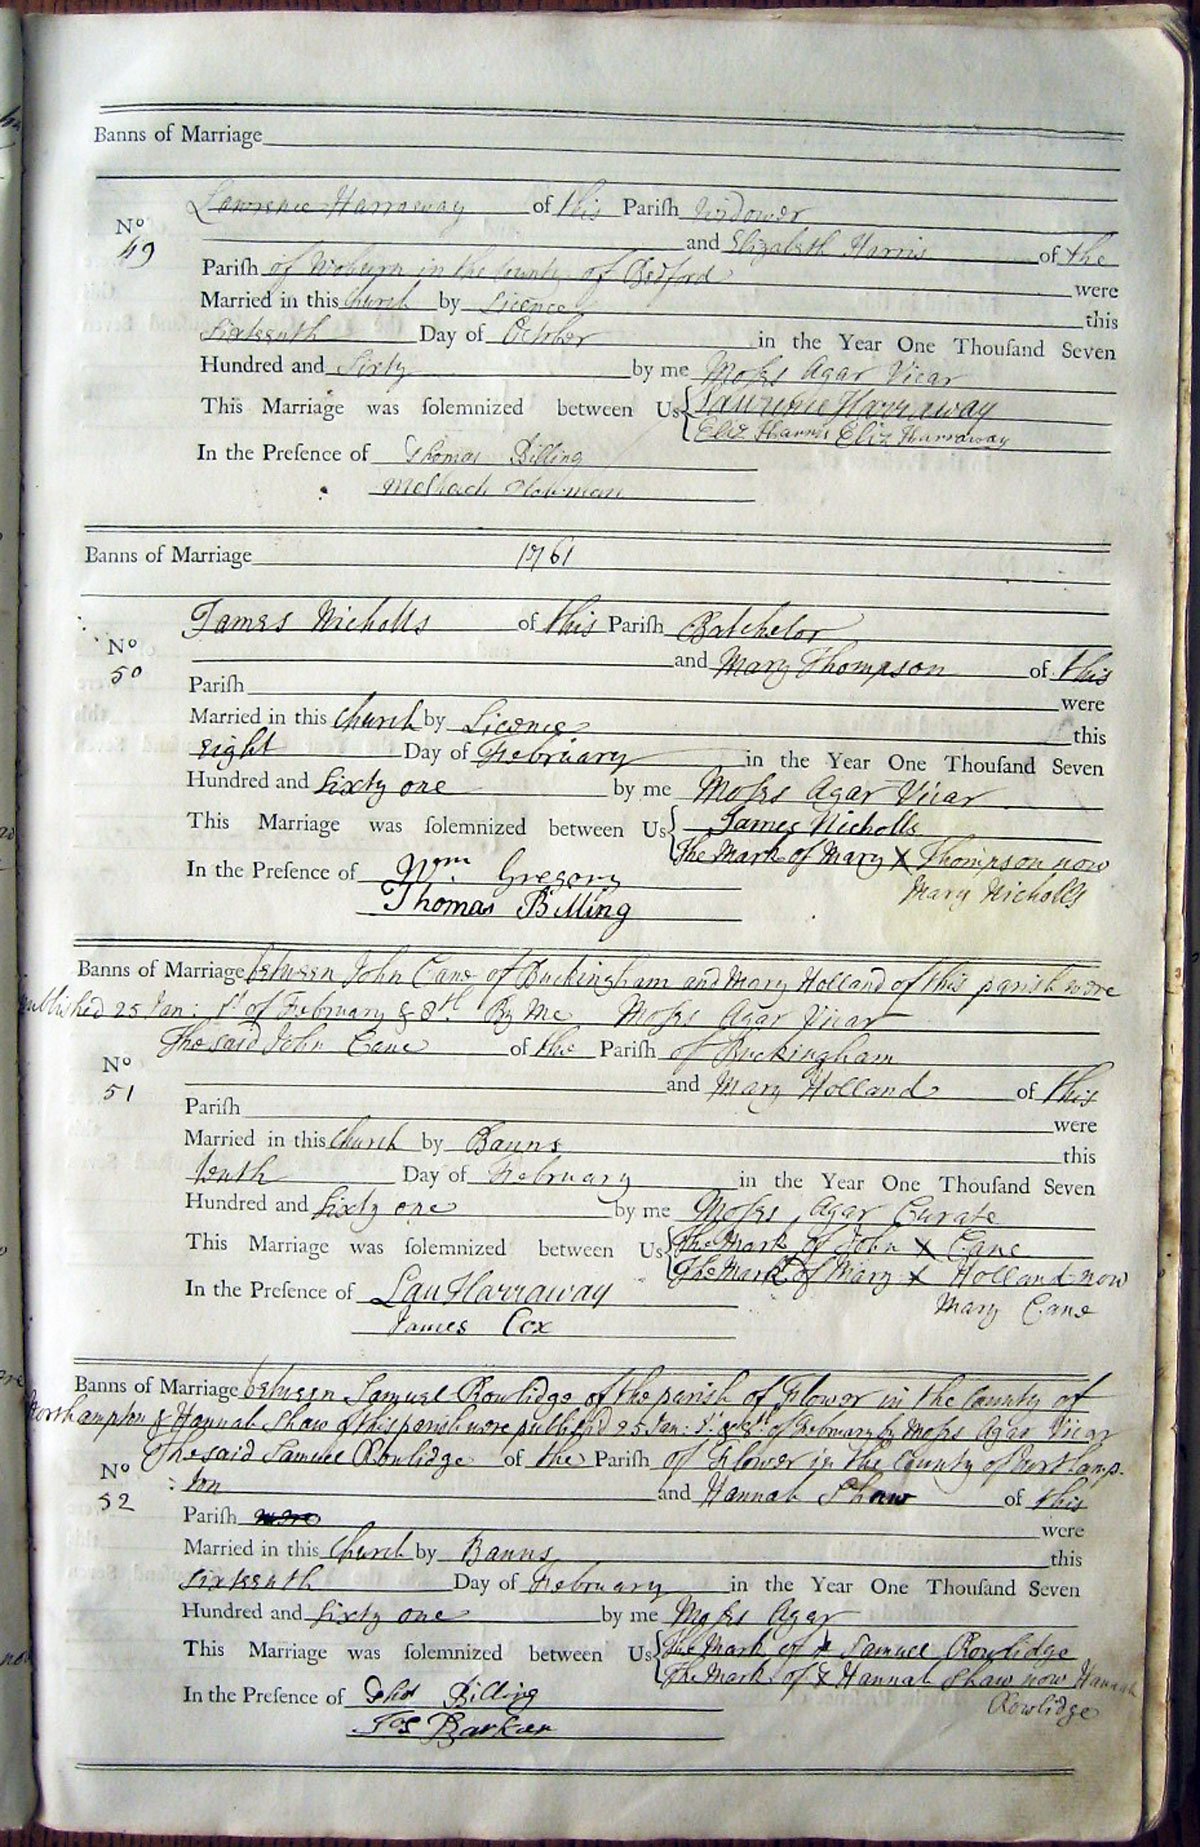 Banns of Marriage
Lawrence Harraway of this Parish Widower
No 49
and Elizabeth Harris of the
Parish of Woburn in the County of Bedford were
Married in this Church by Licence this
Sixteenth Day of October in the Year One Thousand Seven
Hundred and Sixty by me Moses Agar Vicar
This Marriage was solemnized between Us Lawrence Harraway
Eliz Harris Eliz Harraway
In the Presence of Thomas Billing
Meshach
Banns of Marriage 1761
James Nicholls of this Parish Batchelor
No 50
and Mary Thompson of this
Parish were
Married in this Church by Licence this
eight Day of February in the Year One Thousand Seven
Hundred and Sixty one by me Moses Agar Vicar
This Marriage was solemnized between Us James Nicholls
The Mark of Mary X Thompson now
Mary Nicholls
In the Presence of Wm. Gregory
Thomas Billing
Banns of Marriage between John Cane of Buckingham and Mary Holland of this parish were
published 25 Jan: 1st of February & 8th. By Me Moses Agar Vicar
The said John Cane of the Parish of Buckingham
No 51
and Mary Holland of this
Parish were
Married in this Church by Banns this
tenth Day of February in the Year One Thousand Seven
Hundred and Sixty one by me Moses Agar Curate
This Marriage was solemnized between Us The Mark of John X Cane
The Mark of Mary X Holland now
Mary Cane
In the Presence of Lau Harraway
James Cox
Banns of Marriage between Samuel Rowlidge of the parish of Flower in the County of
Northampton & Hannah Shaw of this parish were published 25 Jan: 1st & 8th of February by Moses Agar Vicar
The said Samuel Rowlidge of the Parish of Flower in the County of Northamp-
No 52
: ton and Hannah Shaw of this
Parish were were
Married in this Church by Banns this
sixteenth Day of February in the Year One Thousand Seven
Hundred and Sixty one by me Moses Agar
This Marriage was solemnized between Us The Mark of X Samuel Rowlidge
The Mark of X Hannah Shaw now Hannah
Rowlidge
In the Presence of Thos Billing
Jos Barker